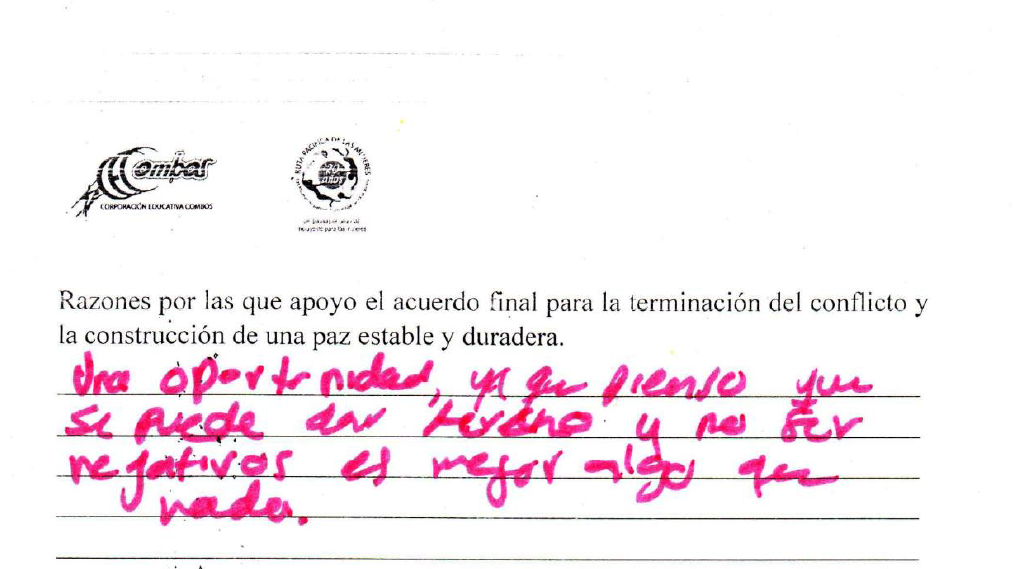 Combos
CORPORACIÓN EDUCATIVA COMBOS
RUTA PACIFICA DE LAS MUJERES
Razones por las que apoyo el acuerdo final para la terminación del conflicto y
la construcción de una paz estable y duradera.
Una oportunidad, ya que pienso que
se puede dar y no ser
negativos es mejor algo que
nada.